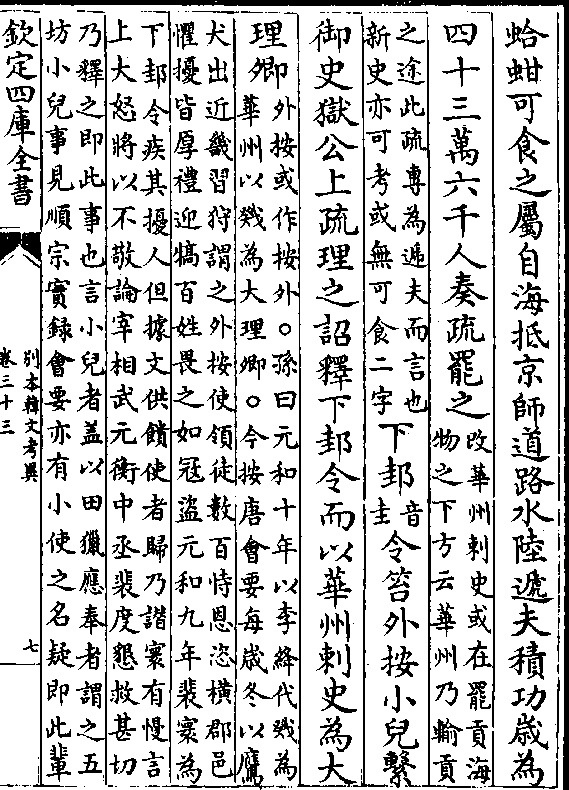 蛤蚶可食之屬自海抵京師道路水陸遞夫積功歲為
四十三萬六千人奏疏罷之
改華州刺史或在罷貢海
物之下方云華州乃輸貢
之途此疏專為遞夫而言也
新史亦可考或無可食二字
下邽音圭令笞外按小兒繫
御史獄公上疏理之詔釋下邽令而以華州刺史為大
理卿
外按或作按外○孫曰元和十年以李絳代戣為
華州以戣為大理卿○今按唐會要每歲冬以鷹
犬出近畿習狩謂之外按使領徒數百恃恩恣橫郡邑
懼擾皆厚禮迎犒百姓畏之如冦盜元和九年裴寰為
下邽令疾其擾人但據文供饋使者歸乃譖寰有慢言
上大怒將以不敬論宰相武元衡中丞裴度懇救甚切
乃釋之即此事也言小兒者盖以田獵應奉者謂之五
坊小兒事見順宗實録會要亦有小使之名疑即此輩
欽定四庫全書
別本韓文考異
卷三十三
七